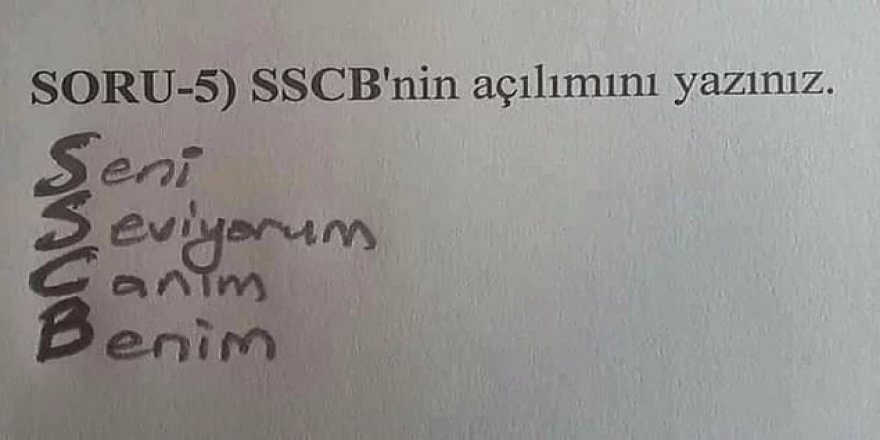 SORU-5) SSCB'nin açılımını yazınız.
Seni
Seviyorum
Canim
Benim